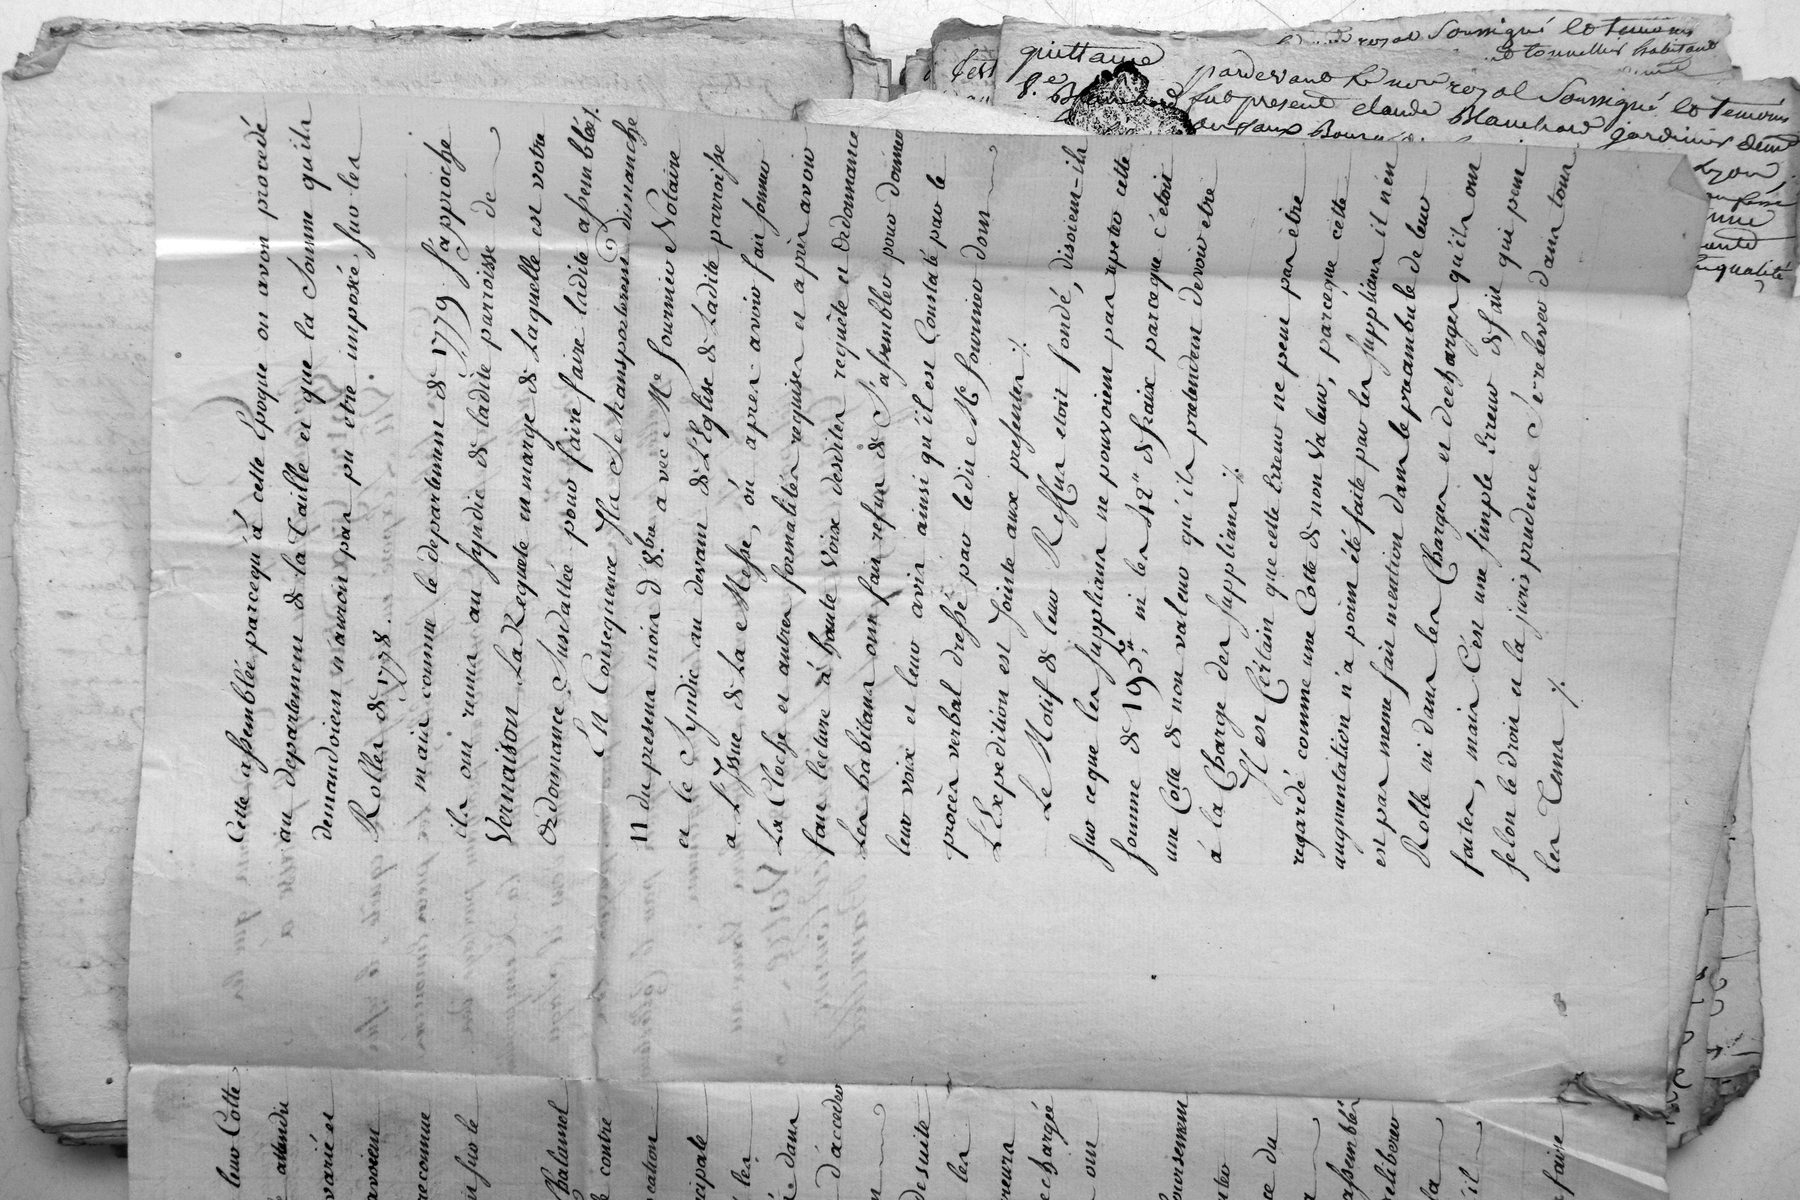 Cette assemblée parcequ'à cette Epoque on avoit procedé
au departement de la Taille et que la Somme qu'ils
demandoient n'auroit pas pu être imposée sur les
Rolles de 1778.
mais comme le departement de 1779 s'approche
ils ont remis au syndic de ladite parroisse de
Vernaison La Requete en marge de Laquelle est votre
Ordonnance Susdattée pour faire faire ladite assemblée /.
En Consequence Ils Se transporterent dimanche
11 du present mois d'8.bre avec Me fournier Notaire
et le Syndic au devant de L'Eglise de Ladite parroisse
a L'Issue de La Messe, où apres avoir fait sonner
La Cloche et autres formalités requises et après avoir
fait lecture à haute voix desdites requête et Ordonnance
Les habitans ont fait refus de S'assembler pour donner
leur voix et leur avis ainsi qu'il est Constaté par le
procès verbal dressé par ledit Me fournier dont
L'Expedition est Jointe aux presentes /.
Le Motif de leur Reffus etoit fondé, disoient-ils
sur ce que les supplians ne pouvoient pas repeter cette
somme de 190 ni les 42" de fraix parceque c'étoit
une Cotte de non valeur qu'ils pretendent devoir etre
à la Charge des Supplians /.
Il est Certain que cette Erreur ne peut pas être
regardé comme une Cotte de non valeur, parceque cette
augmentation n'a point été faite par les supplians il n'en
est pas meme fait mention dans le preambule de leur
Rolle ni dans les Charges et decharges qu'ils ont
faites, mais C'est une simple Erreur de fait qui peut
selon le droit et la jurisprudence Se relever dans tous
les Tems /.
leur Cotte
attendu
varié et
avoient
reconnue
sur le
contre
cation
cipale
les
dans
d'acceder
de suite
les
chargée
ont
ce du
faire
quittance
pardevant le no.re royal Soussigné et temoins
fut present claude Blanchard jardinier dem.t
royal Soussigné et temoins
lyon,
qualité